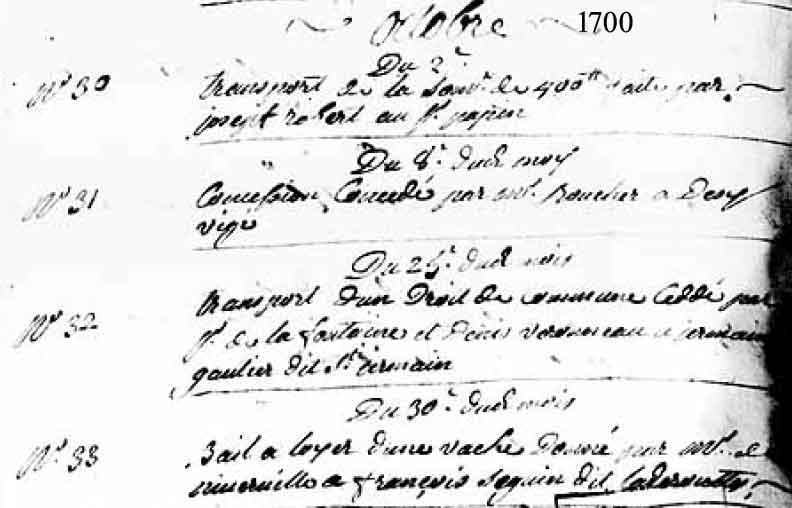 octobre 1700
Du 2e
No 30 transport de la somme de 400 tt fait par
joseph robert au Sr papin
Du 8e dud moy
No 31 Concession Concedé par mr. boucher a Deny
vigé
Du 25e dud mois
No 32 transport dun Droit de commune Ceddé par
Sr de la fontaine et Denis veronneau a jermain
gautier dit St jermain
Du 30e dud mois
No 33 Bail a loyer dune vache Donné par mr. de
niverville a françois seguin dit laderoutte